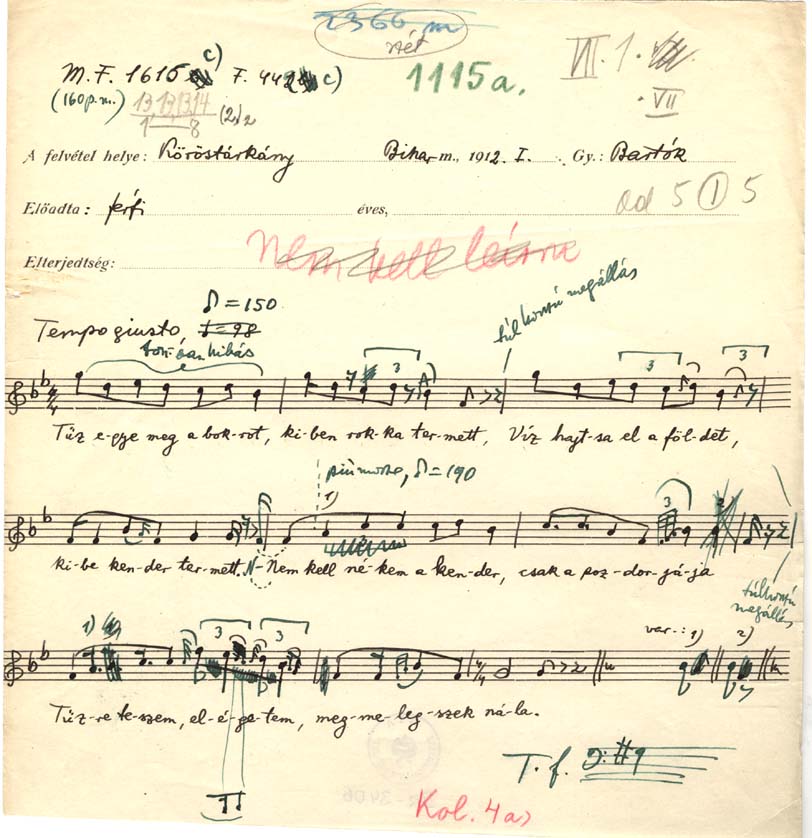 2366 m
M. F. 1616 c) F. 442 c) 1115 a. VII. 1.
(160 p. m.) 13,13,13,14 (2)2 VII
1—8
A felvétel helye: Köröstárkány Bihar m., 1912. I. Gy.: Bartók
Előadta: férfi éves, ad 5 1 5
Elterjedtség: Nem kell leírni
♪ = 150
Tempo giusto, = 98
túl hosszú megállás
3 3 3
Tűz e-gye meg a bok-rot, ki-ben rok-ka ter-mett, Víz hajt-sa el a föl-det,
più mosso, ♪ = 190
1) 3 2)
ki-be ken-der ter-mett. N- Nem kell né-kem a ken-der, csak a poz-dor-já-ja
túl hosszú megállás
1) 3 3 var.: 1) 2)
Tűz-re te-szem, el-é-ge-tem, meg-me-leg-szek ná-la.
T. f.
II
Kol. 4a)